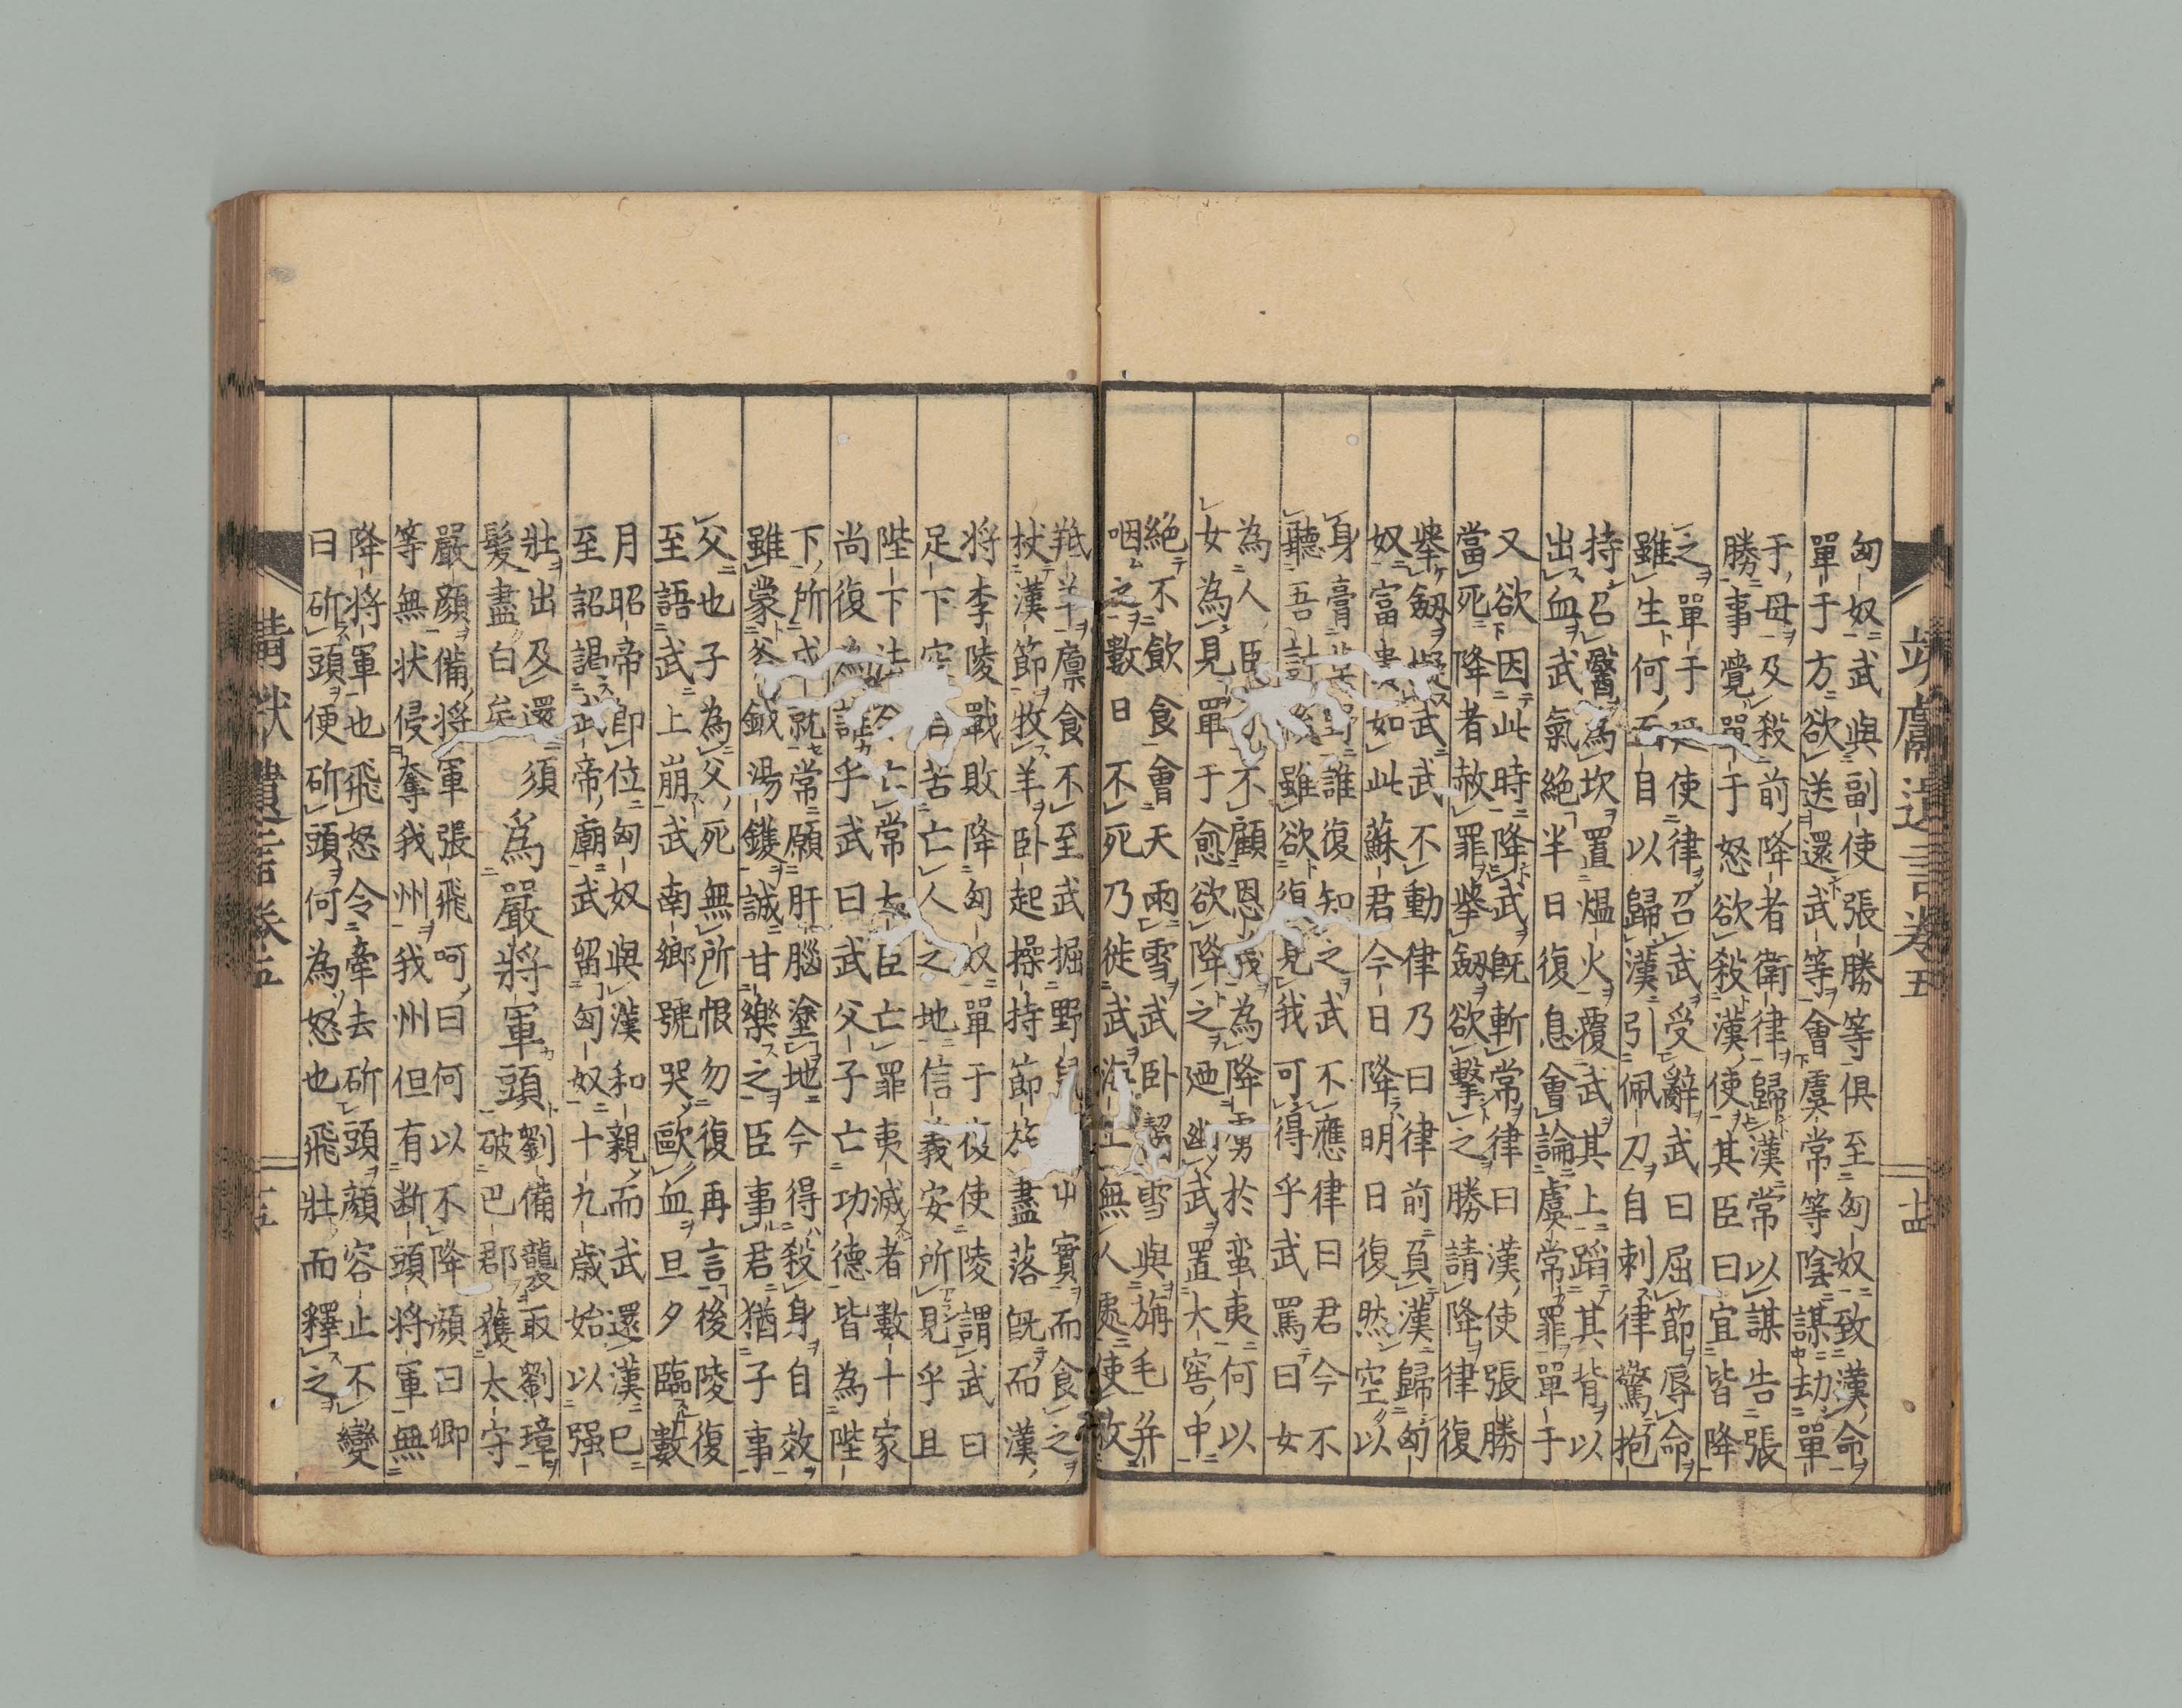 靖獻遺言卷五
十四
匈奴武與副使張勝等俱至匈奴致漢命
單于方欲送還武等會虞常等陰謀劫單
于母及殺前降者衛律歸漢常以謀告張
勝事覺單于怒欲殺漢使其臣曰宜皆降
之單于使律召武受辭武曰屈節辱命
雖生何自以歸漢引佩刀自刺律驚抱
持召醫為坎置熅火覆武其上蹈其背以
出血武氣絶半日復息會論虞常罪單于
又欲因此時降武既斬常律曰漢使張勝
當死降者赦罪舉劔欲擊之勝請降律復
舉劔擬武武不動律乃曰律前負漢歸匈
奴富如此蘇君今日降明日復然空以
身膏野誰復知之武不應律曰君今不
聽吾計雖欲復見我可得乎武罵曰女
為人臣不顧恩義為降虜於蛮夷何以
女為見單于愈欲降之廼幽武置大窖中
絶不飲食會天雨雪武卧齧雪與旃毛并
咽之數日不死乃徙武海上無人處使牧
羝羊廩食不至武掘野鼠屮實而食之
杖漢節牧羊卧起操持節旄盡落既而漢
将李陵戰敗降匈奴單于夜使陵謂武曰
足下空自苦亡人之地信義安所見乎且
陛下法令亡常大臣亡罪夷滅者數十家
尚復為誰乎武曰武父子亡功德皆為陛
下所成就常願肝腦塗地今得殺身自效
雖蒙斧鉞湯鑊誠甘樂之臣事君猶子事
父也子為父死無所恨勿復再言後陵復
至語武上崩武南鄉號哭歐血旦夕臨數
月昭帝即位匈奴與漢和親而武還漢已
至詔謁武帝廟武留匈奴十九歳始以强
壮出及還須
髮盡白矣
為嚴将軍頭
劉備襲取劉璋
破巴郡獲太守
嚴顔備将軍張飛呵曰何以不降顔曰卿
等無状侵奪我州我州但有断頭将軍無
降将軍也飛怒令牽去斫頭顔容止不變
曰斫頭便斫頭何為怒也飛壮而釋之
靖献遺言卷五
十五